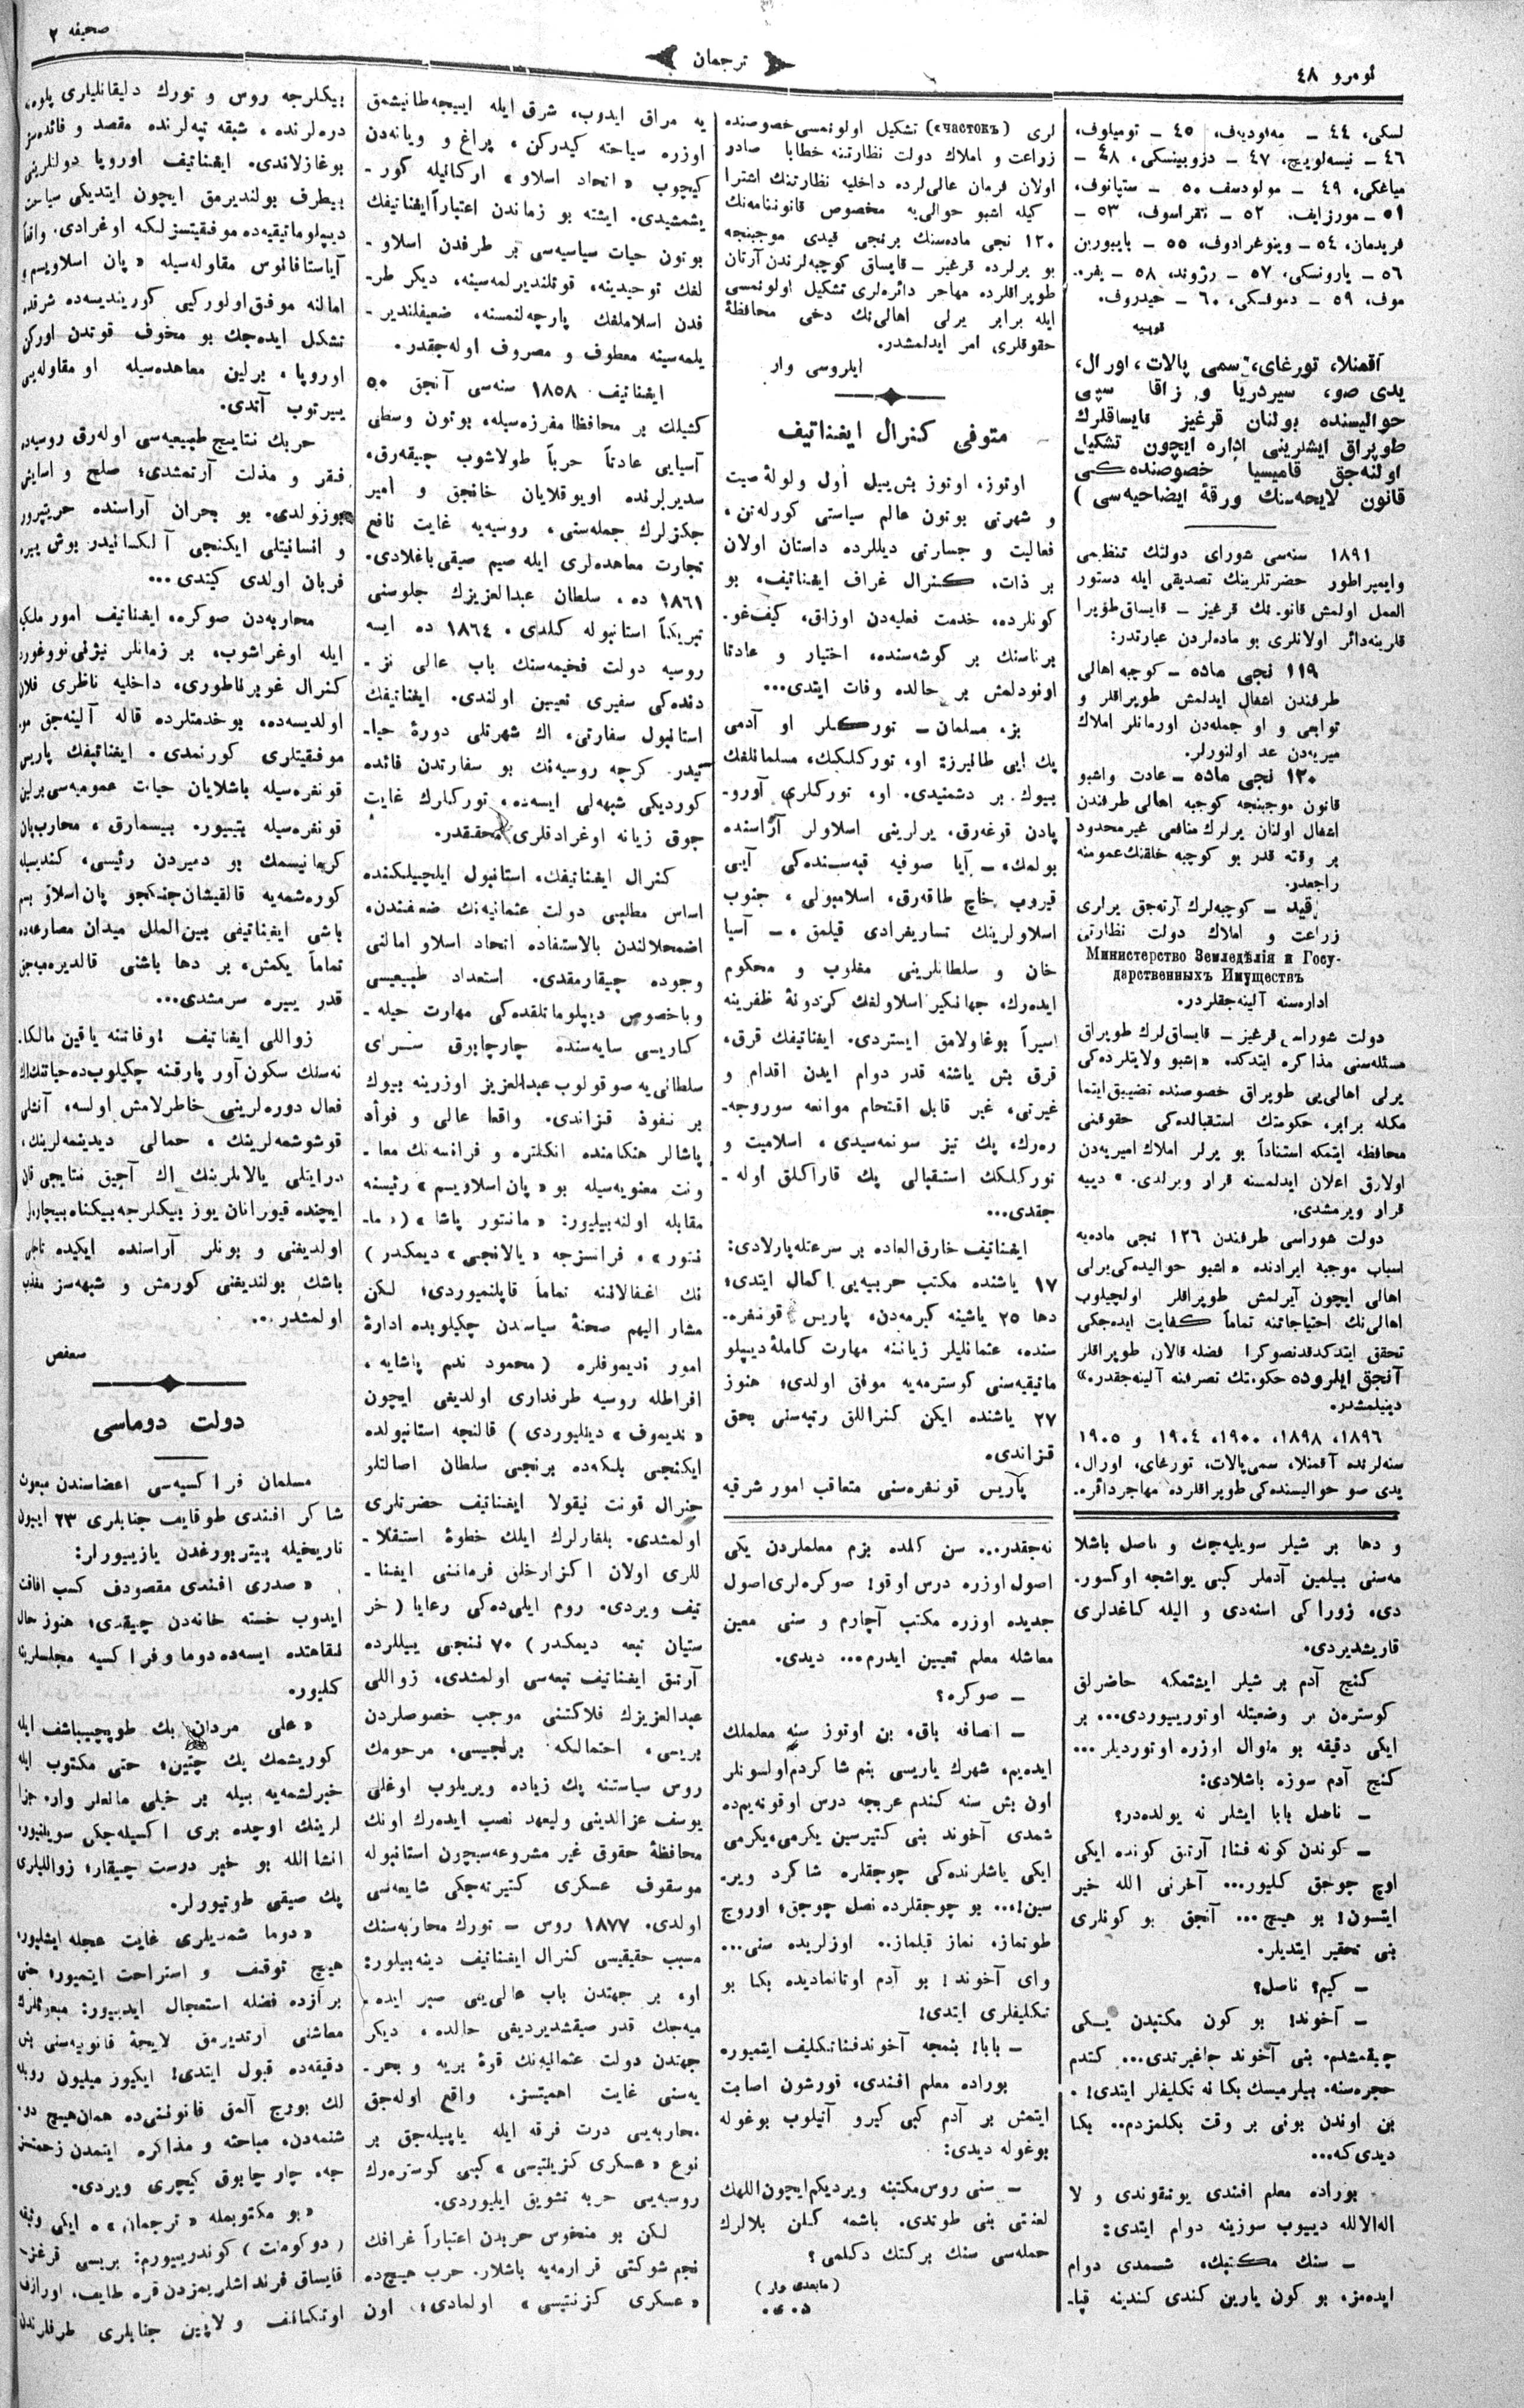 نومرو ٤٨
ترجمان
صحیفه ۲
لسکی، ٤٤ — مه‌اودیف، ٤٥ — تومیلوف،
٤٦ — نیسه‌لویچ، ٤٧ — دزوبینسکی، ٤٨ —
میاغکی، ٤٩ — مولودسف ٥٠ — ستپانوف،
٥١ — مورزایف. ٥٢ — نقراسوف، ٥٣ —
فریدمان، ٥٤ — وینوغرادوف، ٥٥ — بایبورین
٥٦ — یارونسکی، ٥٧ — رژوند، ٥٨ — یفره‌
موف، ٥٩ — دموفسکی، ٦٠ — حیدروف.
آقمنلا، تورغای، سمی پالات، اورال،
یدی صو، سیردریا و زاقا سپی
حوالیسنده بولنان قرغیز قایساقلرك
طوپراق ایشلرینی اداره ایچون تشکیل
اولنه‌جق قامیسیا خصوصنده‌کی
قانون لایحه‌سنك ورقهٔ ایضاحیه‌سی )
۱۸۹۱ سنه‌سی شورای دولتك تنظیمی
وایمپراطور حضرتلرینك تصدیقی ایله دستور
العمل اولمش قانونك قرغیز — قایساق طوپرا
قلرینه‌دائر اولانلری بو ماده‌لردن عبارتدر:
۱۱۹ نجی ماده — کوچبه اهالی
طرفندن اشغال ایدلمش طوپراقلر و
توابعی و او جمله‌دن اورمانلر املاك
میریه‌دن عد اولنورلر.
۱۲۰ نجی ماده — عادت واشبو
قانون موجبنجه کوچبه اهالی طرفندن
اشغال اولنان یرلرك منافعی غیرمحدود
بر وقته قدر بو کوچبه خلقنك عمومنه
راجعدر.
قید — کوچبه‌لرك آرته‌جق یرلری
زراعت و املاك دولت نظارتی
Министерство Земледѣлія и Госу-
дарственныхъ Имуществъ
اداره‌سنه آلینه‌جقلردر.
دولت شوراسی قرغیز — قایساق‌لرك طوپراق
مسئله‌سنی مذاکره ایتدکده «اشبو ولایتلرده‌کی
یرلی اهالی‌یی طوپراق خصوصنده تضییق ایتما
مکله برابر، حکومتك استقبالده‌کی حقوقنی
محافظه ایتمکه استناداً بو یرلر املاك امیریه‌دن
اولارق اعلان ایدلمسنه قرار ویرلدی.» دییه
قرار ویرمشدی.
دولت شوراسی طرفندن ۱۲٦ نجی ماده‌یه
اسباب موجبه ایرادنده «اشبو حوالیده‌کی یرلی
اهالی ایچون آیرلمش طوپراقلر اولچیلوب
اهالی‌نك احتیاجاتنه تماماً کفایت ایده‌جکی
تحقق ایتدکدنصوکرا فضله قالان طوپراقلر
آنجق ایلروده حکومتك تصرفنه آلینه‌جقدر.»
دینیلمشدر.
۱۸۹٦، ۱۸۹۸، ۱۹۰۰، ۱۹۰٤ و ۱۹۰٥
سنه‌لرنده آقمنلا، سمی‌پالات، تورغای، اورال،
یدی صو حوالیسنده‌کی طوپراقلرده مهاجر دائره‌
و دها بر شیلر سویلیه‌جك و ناصل باشلا
مه‌سنی بیلمین آدملر کبی یواشجه اوکسور.
دی. زورا کی اسنه‌دی و الیله کاغدلری
قاریشدیردی.
کنج آدم بر شیلر ایشتمکه حاضرلق
کوسترەن بر وضعیتله اوتورییوردی... بر
ایکی دقیقه بو منوال اوزره اوتوردیلر...
کنج آدم سوزه باشلادی:
— ناصل بابا ایشلر نه یولده‌در؟
— کوندن کونه فنا! آرتق کونده ایکی
اوچ چوجق کلیور... آخرنی الله خیر
ایتسون! بو هیچ... آنجق بو کونلری
بنی تحقیر ایتدیلر.
— کیم؟ ناصل؟
— آخوند! بو کون مکتبدن یسکی
چیقمشدم. بنی آخوند چاغیرتدی... کتدم
حجره‌سنه. بیلرمیسك بکا نه تکلیفلر ایتدی! .
بن اوندن بونی بر وقت بکلمزدم.. بکا
دیدی‌که...
بوراده معلم افندی یوتقوندی و لا
اله‌الاالله دیبوب سوزینه دوام ایتدی:
— سنك مکتبك، شمدی دوام
ایده‌مز، بو کون یارین کندی کندینه قپا.
لری (участокъ) تشکیل اولونمسی خصوصنده
زراعت و املاك دولت نظارتنه خطابا صادر
اولان فرمان عالی‌لرده داخلیه نظارتنك اشترا
کیله اشبو حوالی‌یه مخصوص قانوننامه‌نك
۱۲۰ نجی ماده‌سنك برنجی قیدی موجبنجه
بو یرلرده قرغیز — قایساق کوچبه‌لرندن آرتان
طوپراقلرده مهاجر دائره‌لری تشکیل اولونمسی
ایله برابر یرلی اهالی‌نك دخی محافظهٔ
حقوقلری امر ایدلمشدر.
ایلروسی وار
متوفی کنرال ایغناتیف
اوتوز، اوتوز بش ییل أول ولولهٔ صیت
و شهرتی بوتون عالم سیاستی کورله‌تن،
فعالیت و جسارتی دیللرده داستان اولان
بر ذات، کنرال غراف ایغناتیف، بو
کونلرده، خدمت فعلیه‌دن اوزاق، کیف‌غو.
برناسنك بر کوشه‌سنده، اختیار و عادتا
اونودلمش بر حالده وفات ایتدی...
بز، مسلمان — تورکلر او آدمی
پك ایی طانیرز: او، تورکلکك، مسلمانلقك
بیوك بر دشمنیدی. او، تورکلری آورو-
پادن قوغه‌رق، یرلرینی اسلاولر آراسنده
بولمك، — آیا صوفیه قبه‌سنده‌کی آیی
قیروب خاچ طاقه‌رق، اسلامبولی، جنوب
اسلاولرینك تساریغرادی قیلمق، — آسیا
خان و سلطانلرینی مغلوب و محکوم
ایده‌رك، جهانکیر اسلاولغك کردونهٔ ظفرینه
اسیراً بوغاولامق ایستردی. ایغناتیفك قرق،
قرق بش یاشنه قدر دوام ایدن اقدام و
غیرتی، غیر قابل اقتحام موانعه سوروجه-
ره‌رك، پك تیز سونمه‌سیدی، اسلامیت و
تورکلکك استقبالی پك قاراکلق اوله -
جقدی...
ایغناتیف خارق‌العاده بر سرعتله پارلادی:
۱۷ یاشنده مکتب حربیه‌یی اکمال ایتدی؛
دها ۲٥ یاشینه کیرمه‌دن، پاریس قونفره-
سنده، عثمانلیلر زیاننه مهارت کامله‌ٔ دیپلو
ماتیقیه‌سنی کوسترمه‌یه موفق اولدی؛ هنوز
۲۷ یاشنده ایکن کنراللق رتبه‌سنی بحق
قزاندی.
پاریس قونفره‌سنی متعاقب امور شرقیه
نه‌جقدر... سن کلمده بزم معلملردن یکی
اصول اوزره درس اوقو! صوکره‌لری اصول
جدیده اوزره مکتب آچارم و سنی معین
معاشله معلم تعیین ایدرم... دیدی.
— صوکره؟
— انصافه باق، بن اوتوز سنه معلملك
ایده‌یم، شهرك یاریسی بنم شاکردم اولسونلر
اون بش سنه کندم عربجه درس اوقونه‌یم‌ده
شمدی آخوند بنی کتیرسین یکرمی، یکرمی
ایکی یاشلرنده‌کی چوجقلره شاکرد ویر-
سین!... بو چوجقلرده نصل چوجق؛ اوروج
طوتماز، نماز قیلماز.. اوزلریده سنی...
وای آخوند! بو آدم اوتانمادیده بکا بو
تکلیفلری ایتدی!
— بابا! بنمجه آخوند فنا تکلیف ایتمیوره
بوراده معلم افندی، قورشون اصابت
ایتمش بر آدم کبی کیرو آتیلوب بوغوله
بوغوله دیدی:
— سنی روس مکتبنه ویردیکم ایچون اللهك
لعنتی بنی طوتدی. باشمه کلن بلالرك
حمله‌سی سنك برکتك دکلمی؟
(مابعدی وار)
یه مراق ایدوب، شرق ایله ایییجه طانیشمق
اوزره سیاحته کیدرکن، پراغ و ویانه‌دن
کیچوب «اتحاد اسلاو» ارکانیله کور-
یشمشیدی. ایشته بو زماندن اعتباراً ایغناتیفك
بوتون حیات سیاسیه‌سی بر طرفدن اسلاو-
لغك توحیدینه، قوتلندیرلمه‌سینه، دیکر طر-
فدن اسلاملغك پارچه‌لنمسنه، ضعیفلندیر-
یلمه‌سینه معطوف و مصروف اوله‌جقدر.
ایغناتیف ۱۸٥۸ سنه‌سی آنجق ٥۰
کشیلك بر محافظا مفرزه‌سیله، بوتون وسطی
آسیایی عادتاً حرباً طولاشوب چیقه‌رق،
سدیرلرنده اویوقلایان خانجق و امیر
جکزلرك جمله‌سنی، روسیه‌یه غایت نافع
تجارت معاهده‌لری ایله صیم صیقی باغلادی.
۱۸٦۱ ده، سلطان عبدالعزیزك جلوسنی
تبریکاً استانبوله کلدی. ۱۸٦٤ ده ایسه
روسیه دولت فخیمه‌سنك باب عالی نز-
دنده‌کی سفیری تعیین اولندی. ایغناتیفك
استانبول سفارتی، اك شهرتلی دورهٔ حیا-
تیدر. کرچه روسیه‌نك بو سفارتدن فائده
کوردیکی شبهه‌لی ایسه‌ده، تورکلرك غایت
چوق زیانه اوغرادقلری محققدر.
کنرال ایغناتیفك، استانبول ایلچیلیکنده
اساس مطلبی دولت عثمانیه‌نك ضعفندن،
اضمحلالندن بالاستفاده اتحاد اسلاو امالنی
وجوده چیقارمقدی. استعداد طبیعیسی
وباخصوص دیپلوماتلقده‌کی مهارت حیله-
کاریسی سایه‌سنده چارچابوق سرای
سلطانی‌یه صوقولوب عبدالعزیز اوزرینه بیوك
بر نفوذ قزاندی. واقعا عالی و فوأد
پاشالر هنکامنده انکلتره و فرانسه‌نك معا-
ونت معنویه‌سیله بو «پان اسلاویسم» رئیسنه
مقابله اولنه‌بیلیور: «مانتور پاشا» (مـا-
نتور»، فرانسزجه «یالانجی» دیمکدر)
نك اغفالاتنه تماماً قاپلنمیوردی؛ لکن
مشار الیهم صحنهٔ سیاسدن چکیلوبده ادارهٔ
امور ندیموفلره (محمود ندیم پاشایه،
افراطله روسیه طرفداری اولدیغی ایچون
«ندیموف» دینلیوردی) قالنجه استانبولده
ایکنجی بلکه‌ده برنجی سلطان اصالتلو
جنرال قونت نیقولا ایغناتیف حضرتلری
اولمشدی. بلغارلرك ایلك خطوهٔ استقلا-
للری اولان اکزارخلق فرماننی ایغنا-
تیف ویردی. روم ایلی‌ده‌کی رعایا (خر
ستیان تبعه دیمکدر) ۷۰ ننجی ییللرده
آرتق ایغناتیف تبعه‌سی اولمشدی. زواللی
عبدالعزیزك فلاکتنی موجب خصوصلردن
بریسی، احتمالکه برنجیسی، مرحومك
روس سیاستنه پك زیاده ویریلوب اوغلی
یوسف عزالدینی ولیعهد نصب ایده‌رك اونك
محافظهٔ حقوق غیر مشروعه‌سیچون استانبوله
موسقوف عسکری کتیرته‌جکی شایعه‌سی
اولدی. ۱۸۷۷ روس — تورك محاربه‌سنك
مسبب حقیقیسی کنرال ایغناتیف دینه‌بیلور:
او، بر جهتدن باب عالی‌یی صبر ایده.
میه‌جك قدر صیقشدیردیغی حالده، دیکر
جهتدن دولت عثمانیه‌نك قوهٔ بریه و بحر-
یه‌سنی غایت اهمیتسز، واقع اوله‌جق
محاربه‌یی درت فرقه ایله یاپیله‌جق بر
نوع «عسکری کزینتیسی» کبی کوستره‌رك
روسیه‌یی حربه تشویق ایلیوردی.
لکن بو منحوس حربدن اعتباراً غرافك
نجم شوکتی قرارمه‌یه باشلار. حرب هیچ‌ده
«عسکری کزنتیسی» اولمادی؛ اون
بیکلرجه روس و تورك دلیقانلیلری پلونه
دره‌لرنده، شبقه تپه‌لرنده مقصد و فائده‌سز
بوغازلاندی. ایغناتیف اوروپا دولتلرینی
بیطرف بولندیرمق ایچون ایتدیکی سیاحت
دیپلوماتیقیه‌ده موفقیتسزلکه اوغرادی. واقعا
آیاستافانوس مقاوله‌سیله «پان اسلاویسم»
امالنه موفق اولور کیی کوریندیسه‌ده شرقده
تشکل ایده‌جك بو مخوف قوتدن اورکن
اوروپا، برلین معاهده‌سیله او مقاوله‌یی
ییرتوب آتدی.
حربك نتایج طبیعیه‌سی اوله‌رق روسیه‌ده
فقر و مذلت آرتمشدی؛ صلح و اسایش
بوزولدی. بو بحران آراسنده حریتپرور
و انسانیتلی ایکنجی آلکساندر بوش ییره
قربان اولدی کیتدی...
محاربه‌دن صوکره، ایغناتیف امور ملکیه
ایله اوغراشوب، بر زمانلر نیژنی نووغورد
کنرال غوبرناطوری، داخلیه ناظری فلان
اولدیسه‌ده، بو خدمتلرده قاله آلینه‌جق مو
موفقیتلری کورنمدی. ایغناتیفك پاریس
قونفره‌سیله باشلایان حیات عمومیه‌سی برلین
قونفره‌سیله بیتیور. بیسمارق، محارب پان
کرمانیسمك بو دمیردن رئیسی، کندیسیله
کوره‌شمه‌یه قالقیشان جنکجو پان اسلاویسم
باشی ایغناتیفی بین‌الملل میدان مصارعه‌ده
تماماً یکمش، بر دها باشنی قالدیره‌میه‌جق
قدر ییره سرمشدی...
زواللی ایغناتیف وفاتنه یاقین مالکا.
نه‌سنك سکون آور پارقنه چکیلوب‌ده حیاتنك اك
فعال دوره‌لرینی خاطرلامش اولسه، آتلی
قوشوشمه‌لرینك، حمالی دیدینمه‌لرینك،
درایتلی یالانلرینك اك آجیق نتایجی قان
ایچنده قیورانان یوز بیکلرجه بیکناه بیچاره‌لر
اولدیغنی و بونلر آراسنده ایکیده تاجلی
باشك بولندیغنی کورمش و شبهه‌سز معذب
اولمشدر...
دولت دوماسی
مسلمان فراکسیه‌سی اعضاسندن مبعوث
شاکر افندی طوقایف جنابلری ۲۳ اییون
تاریخیله پیتربورغدن یازییورلر:
«صدری افندی مقصودف کسب افاقت
ایدوب خسته خانه‌دن چیقدی؛ هنوز حال
نقاهتده ایسه‌ده دوما و فراکسیه مجلسلرینه
کلیور.
«علی مردان بك طوپچیباشف ایله
کوریشمك پك چتین؛ حتی مکتوب ایله
خبرلشمه‌یه بیله بر خیلی مانعلر وار، جزا
لرینك اوچده بری اکسیله‌جکی سویلنیور.
انشاالله بو خبر درست چیقار؛ زواللیلری
پك صیقی طوتیورلر.
«دوما شمدیلری غایت عجله ایشلیور،
هیچ توقف و استراحت ایتمیور؛ حتی
بر آزده فضله استعجال ایدییور: مبعوثلرك
معاشنی ارتدیرمق لایحهٔ قانونیه‌سنی بش
دقیقه‌ده قبول ایتدی! ایکیوز میلیون روبله
لك بورج آلمق قانوننی‌ده همان هیچ دو.
شنمه‌دن، مباحثه و مذاکره ایتمدن زحمتسز
جه، چار چابوق کیچری ویردی.
«بو مکتوبمله «ترجمان»ه ایکی وثیقه
(دوکومنت) کوندرییورم: بریسی قرغز-
قایساق قرنداشلریمزدن قره طایف، اورازف
اوتکمانف و لاپین جنابلری طرفلرندن